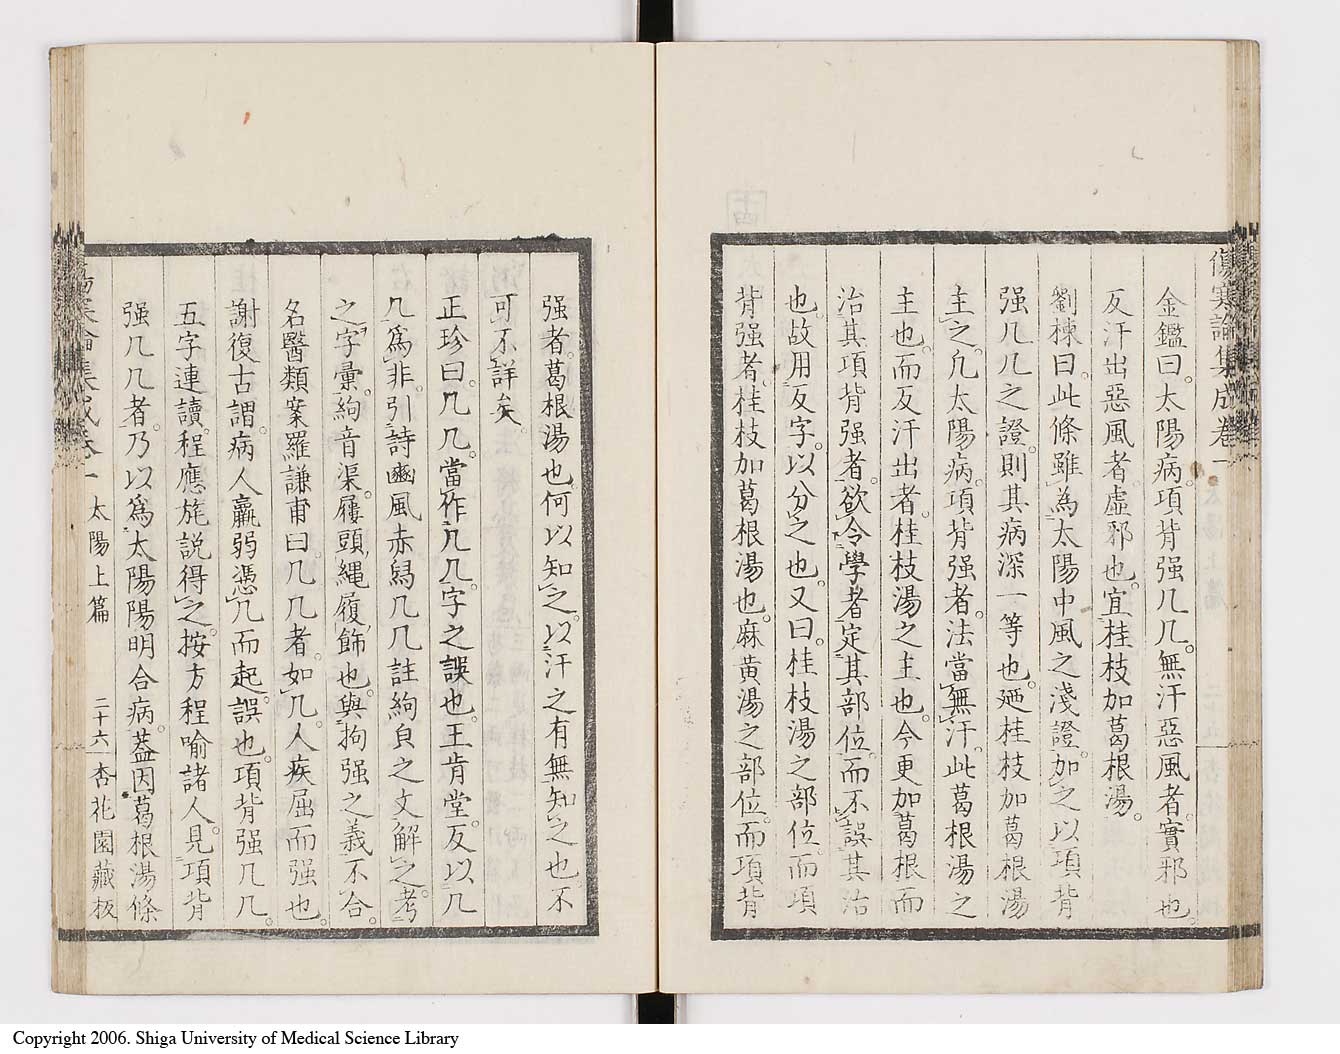 傷寒論集成卷一
金鑑曰。太陽病。項背强几几。無汗惡風者。實邪也。
反汗出惡風者。虛邪也。宜桂枝加葛根湯。
劉棟曰。此條雖爲太陽中風之淺證。加之以項背
强几几之證。則其病深一等也。廼桂枝加葛根湯
主之。凢太陽病。項背强者。法當無汗。此葛根湯之
主也。而反汗出者。桂枝湯之主也。今更加葛根而
治其項背强者。欲令學者定其部位。而不誤其治
也。故用反字。以分之也。又曰。桂枝湯之部位。而項
背强者。桂枝加葛根湯也。麻黃湯之部位。而項背
强者。葛根湯也。何以知之。以汗之有無知之也。不
可不詳矣。
正珍曰。几几。當作几几。字之誤也。王肯堂。反以几
几爲非。引詩豳風赤舄几几註絇貞之文解之。考
之字彙。絇音渠。屨頭。繩履飾也。與拘强之義不合。
名醫類案羅謙甫曰。几几者。如几。人疾屈而强也。
謝復古謂。病人羸弱。憑几而起。誤也。項背强几几。
五字連讀。程應旄說得之。按方程喻諸人。見項背
强几几者。乃以爲太陽陽明合病。蓋因葛根湯條
傷寒論集成卷一 太陽上篇 二十六 杏花園藏板